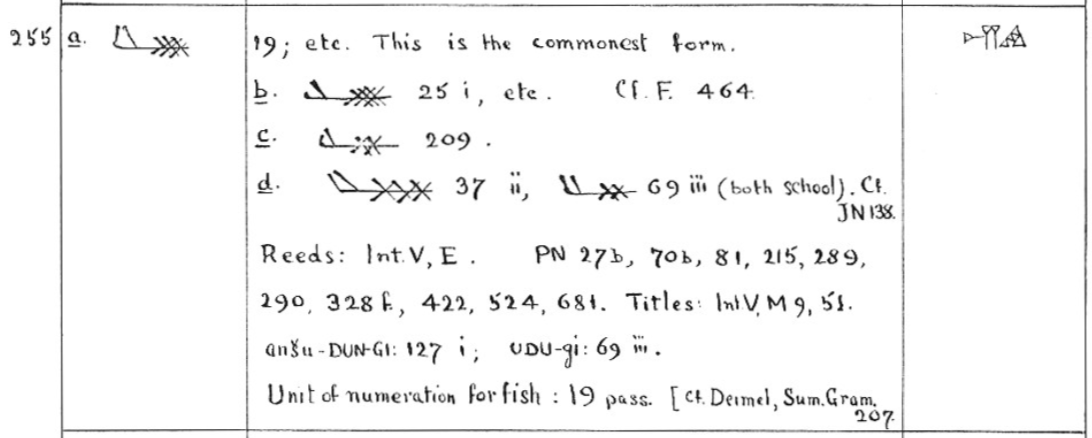 255 a. 19; etc. This is the commonest form.
b. 25 i, etc. Cf. F. 464.
c. 209.
d. 37 ii, 69 iii (both school). Cf. JN 138.
Reeds: Int. V, E. PN 27b, 70b, 81, 215, 289,
290, 328 f., 422, 524, 681. Titles: Int V, M 9, 51.
anšu-DUN-GI: 127 i; UDU-gi: 69 iii.
Unit of numeration for fish: 19 pass. [Cf. Deimel, Sum. Gram. 207.